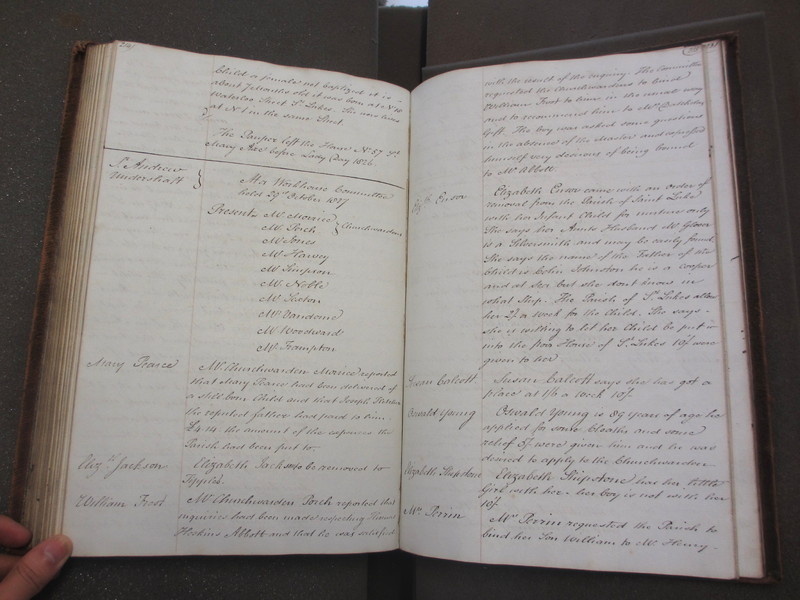 241
Child a female not baptized it is
about 7 Months old it was born at No 10
Waterloo Street St Lukes. She now lives
at No 1 in the same Street.
The Pauper left the House No 87 St
Mary Axe before Lady Day 1826.
St Andrew
Undershaft
At a Workhouse Committee
held 29th October 1827
Present Mr Morrice
Mr Porch
Churchwardens
Mr Jones
Mr Harvey
Mr Simpson
Mr Noble
Mr Sexton
Mr Vandome
Mr Woodward
Mr Frampton
Mary Pearce
Mr Churchwarden Morrice reported
that Mary Pearce had been delivered of
a still born Child and that Joseph
the reputed father had paid to him
£4.14. the amount of the expences the
Parish had been put to.
Elizth Jackson
Elizabeth Jackson to be removed to
William Frost
Mr Churchwarden Porch reported that
inquiries had been made respecting
Hoskins Abbott and that he was satisfied
with the result of the inquiry. The Committee
requested the Churchwardens to bind
William Frost to him in the usual way
and to recommend him to
Goff. The boy was asked some questions
in the absence of the Master and expressed
himself very desirous of being bound
to Mr Abbott.
Elizth Ensor
Elizabeth Ensor came with an order of
removal from the Parish of Saint Luke
with her Infant Child for nurture only
She says her Aunts Husband Mr Glover
is a Silversmith and may be easily found
She says the name of the Father of the
Child is Colin Johnston he is a cooper
and at Sea but she dont know in
what Ship. The Parish of St Lukes allow
her 2/ a week for the Child. She says
she is willing to let her Child be put
into the poor House of St Lukes 10/ were
given to her
Susan Calcott
Susan Calcott says she has got a
place at 1/6 a week 10/.
Oswald Young
Oswald Young is 89 years of age he
applied for some Cloaths and some
relief 5/ were given him and he was
desired to apply to the Churchwarden
Elizabeth Shipstone
Elizabeth Shipstone has her little
Girl with her - her boy is not with her
10/.
Mrs Perrin
Mrs Perrin requested the Parish to
bind her Son William to Mr Henry.